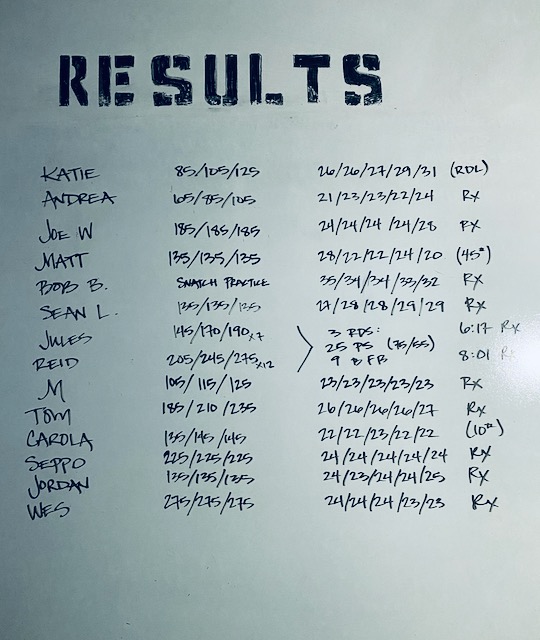 RESULTS
KATIE 85/105/125 26/26/27/29/31 (RDL)
ANDREA 65/85/105 21/23/23/22/24 RX
JOE W 185/185/185 24/24/24/24/28 RX
MATT 135/135/135 28/22/22/24/20 (45#)
BOB B. SNATCH PRACTICE 35/34/34/33/32 RX
SEAN L. 135/135/135 27/28/28/29/29 RX
JULES 145/170/190x7 3 RDS: 6:17 RX
25 PS (75/55)
REID 205/245/275x12 9 B FB 8:01 R
M 105/115/125 23/23/23/23/23 RX
TOM 185/210/235 26/26/26/26/27 RX
CAROLA 135/145/145 22/22/23/22/22 (10#)
SEPPO 225/225/225 24/24/24/24/24 RX
JORDAN 135/135/135 24/23/24/24/25 RX
WES 275/275/275 24/24/24/23/23 RX